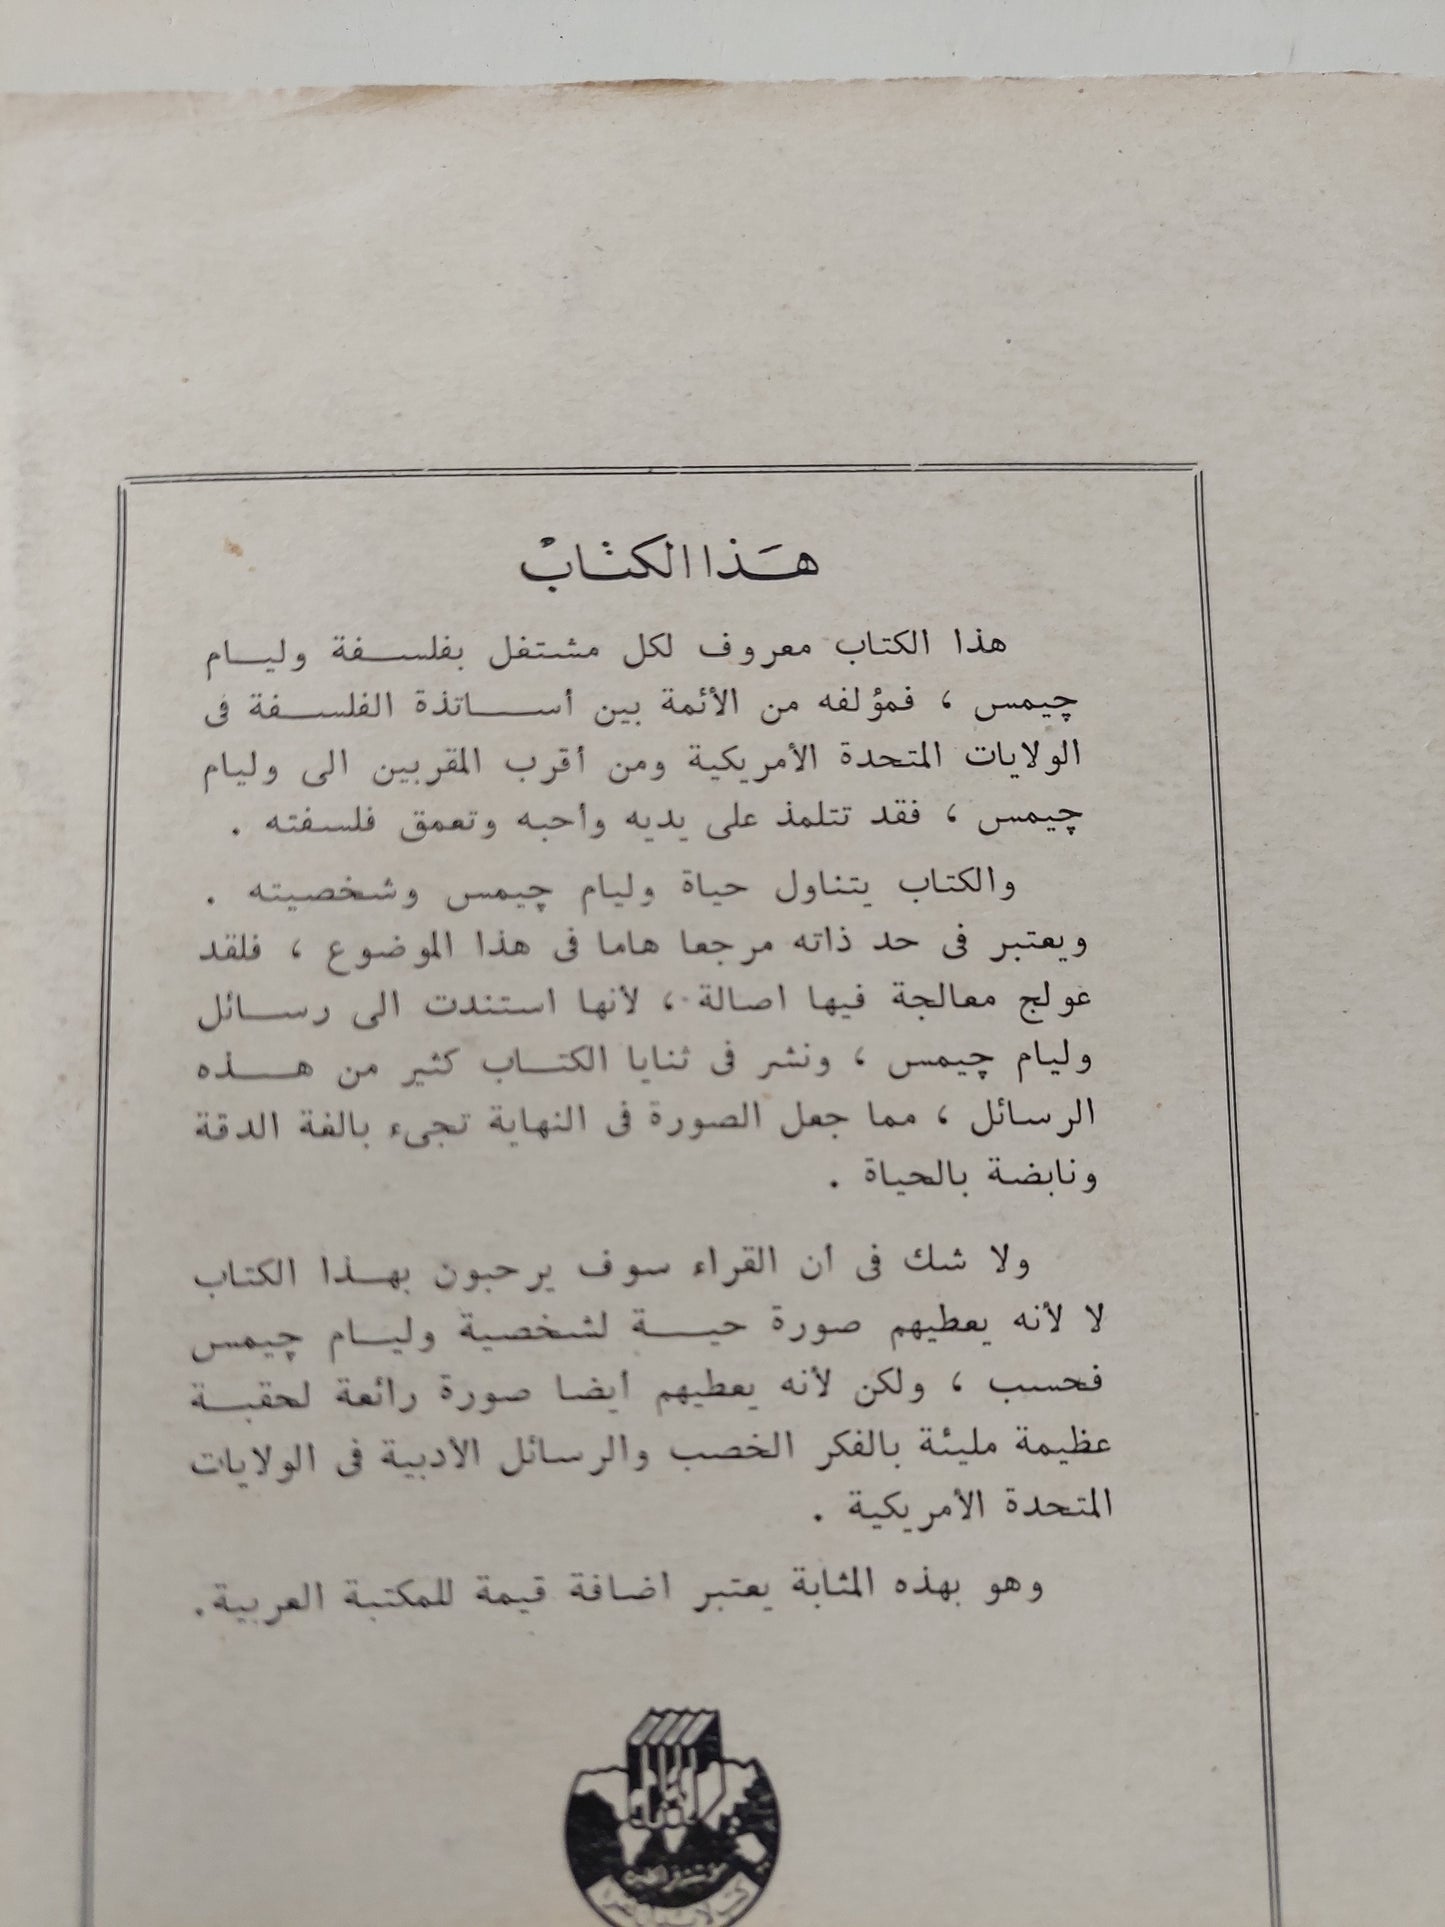 هَذا الكتَابْ
هذا الكتاب معروف لكل مشتغل بفلسفة وليام
چيمس ، فمؤلفه من الأئمة بين أساتذة الفلسفة فى
الولايات المتحدة الأمريكية ومن أقرب المقربين الى وليام
چيمس ، فقد تتلمذ على يديه وأحبه وتعمق فلسفته .
والكتاب يتناول حياة وليام چيمس وشخصيته .
ويعتبر فى حد ذاته مرجعا هاما فى هذا الموضوع ، فلقد
عولج معالجة فيها اصالة ، لأنها استندت الى رسائل
وليام چيمس ، ونشر فى ثنايا الكتاب كثير من هذه
الرسائل ، مما جعل الصورة فى النهاية تجىء بالغة الدقة
ونابضة بالحياة .
ولا شك فى أن القراء سوف يرحبون بهذا الكتاب
لا لأنه يعطيهم صورة حية لشخصية وليام چيمس
فحسب ، ولكن لأنه يعطيهم أيضا صورة رائعة لحقبة
عظيمة مليئة بالفكر الخصب والرسائل الأدبية فى الولايات
المتحدة الأمريكية .
وهو بهذه المثابة يعتبر اضافة قيمة للمكتبة العربية.